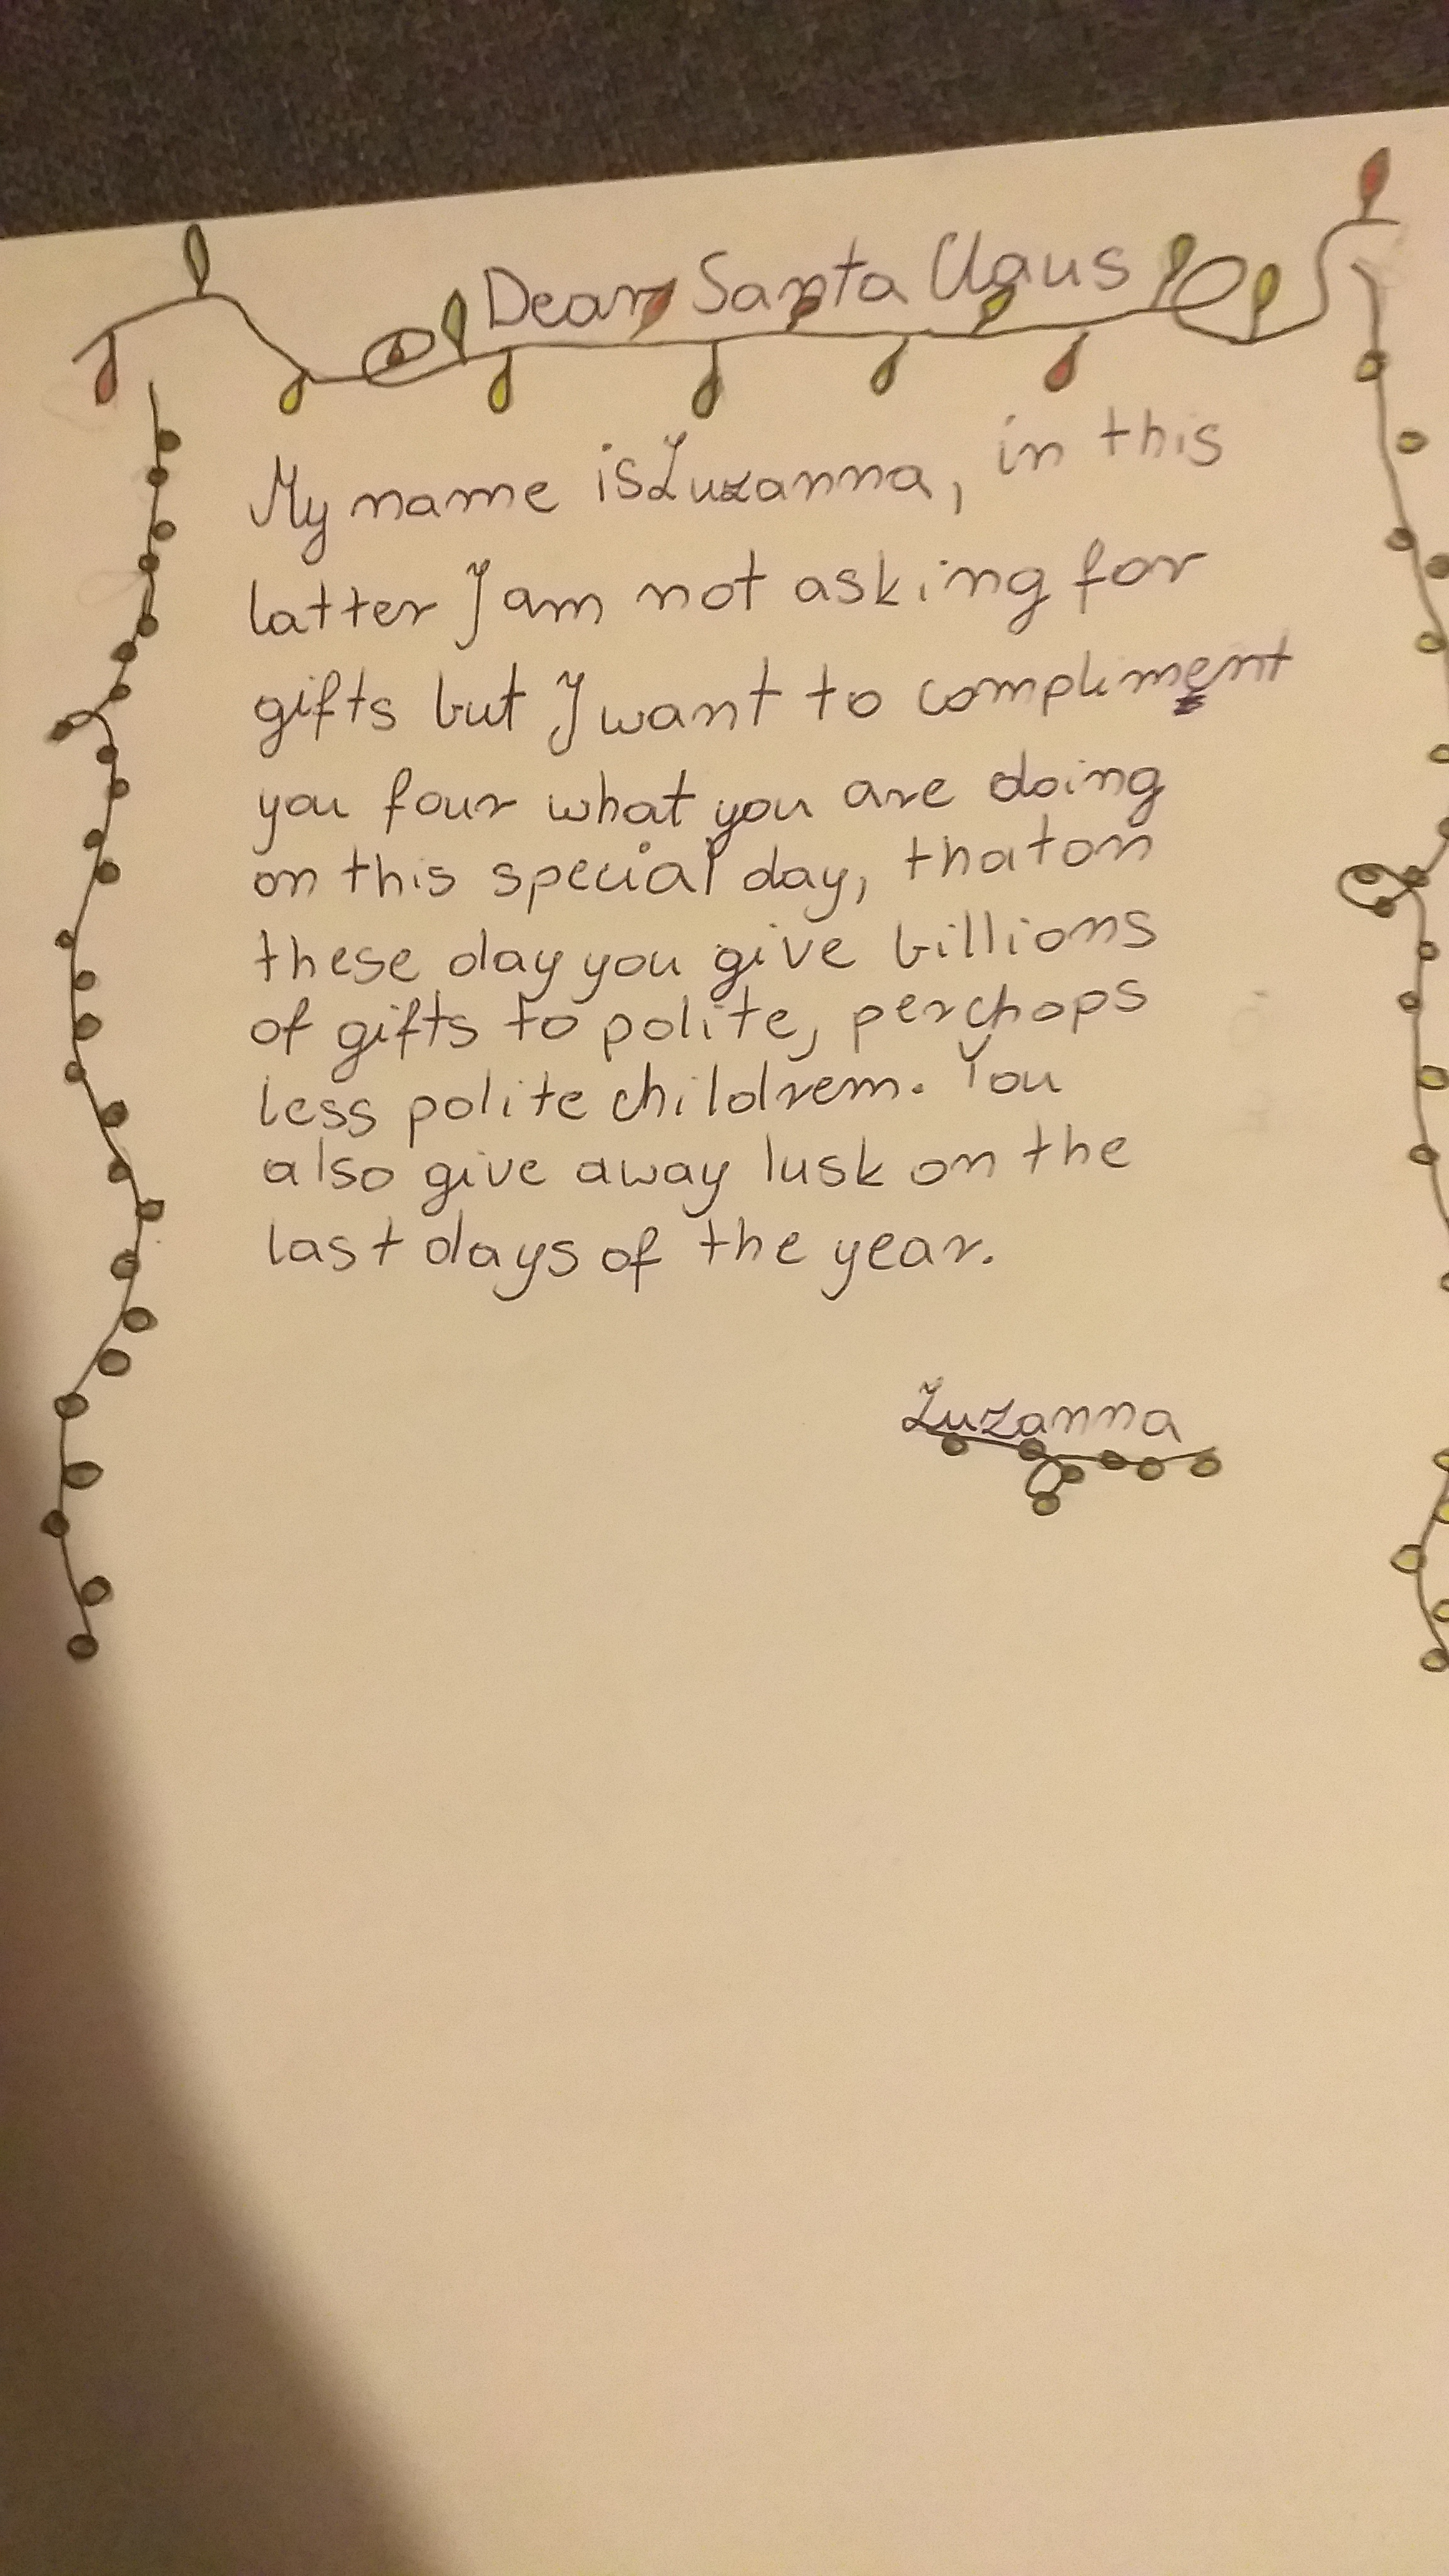 Dear Santa Claus
My name is Zuzanna, in this
latter I am not asking for
gifts but I want to compliment
you four what you are doing
on this special day, that on
these day you give billions
of gifts to polite, perchops
less polite childrem. You
also give away lusk on the
last days of the year.
Zuzanna